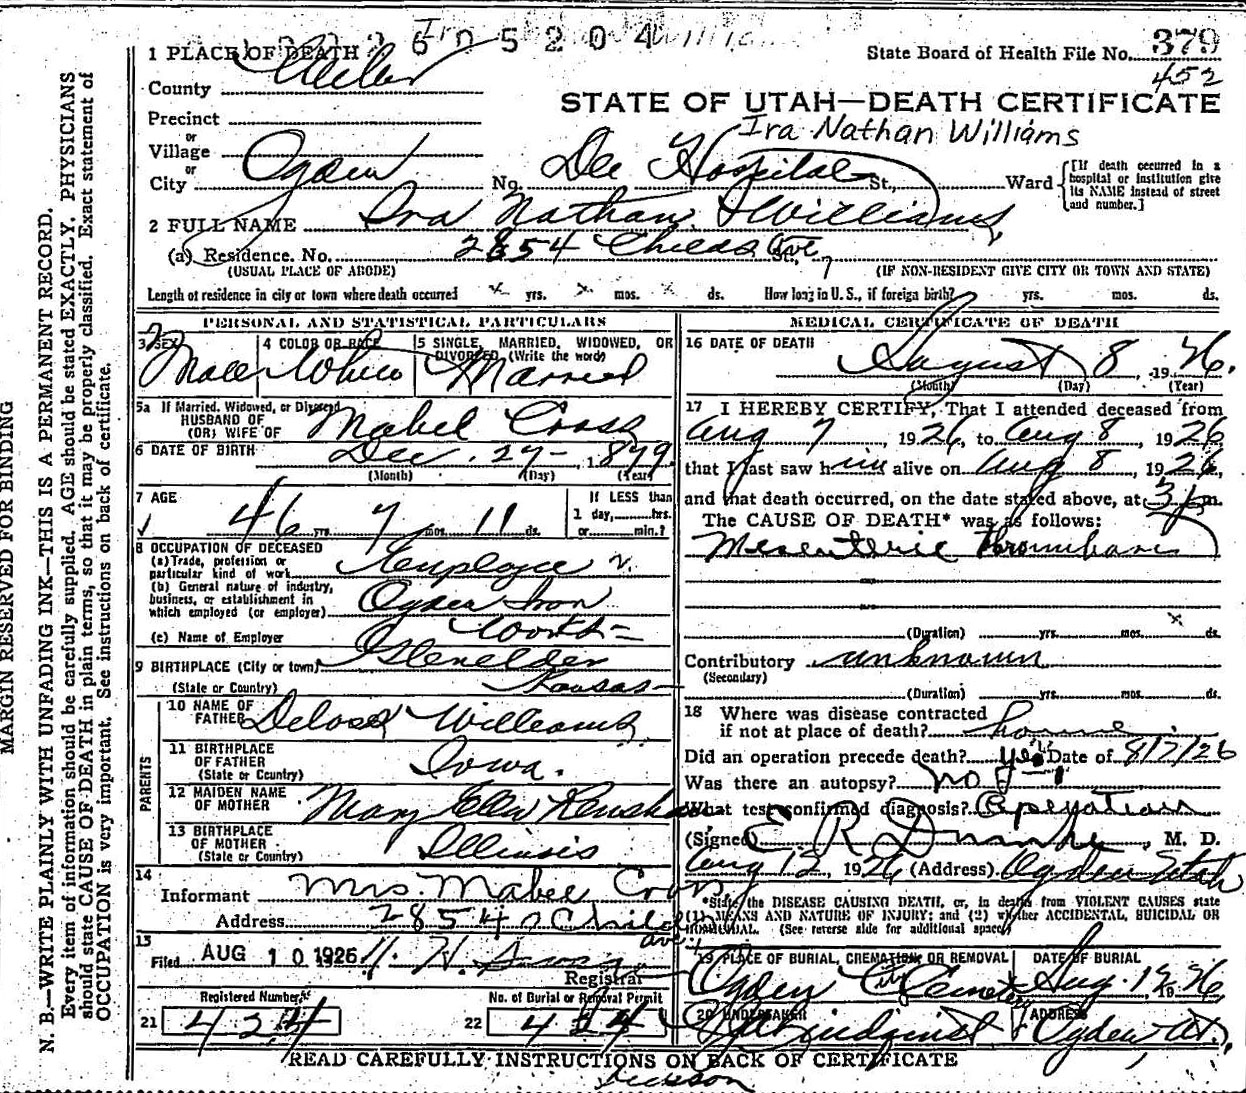 2605204
1 PLACE OF DEATH
State Board of Health File No. 379
452
County Weber
STATE OF UTAH—DEATH CERTIFICATE
Precinct
Ira Nathan Williams
or
Village
or
City Ogden No. Dee Hospital St., Ward
[If death occurred in a hospital or institution give its NAME instead of street and number.]
2 FULL NAME Ira Nathan Williams
(a) Residence. No. 2854 Childs Ave St.,
(USUAL PLACE OF ABODE) (IF NON-RESIDENT GIVE CITY OR TOWN AND STATE)
Length of residence in city or town where death occurred yrs. mos. ds. How long in U.S., if foreign birth? yrs. mos. ds.
PERSONAL AND STATISTICAL PARTICULARS
3 SEX Male
4 COLOR OR RACE White
5 SINGLE, MARRIED, WIDOWED, OR DIVORCED (Write the word) Married
5a If Married, Widowed, or Divorced
HUSBAND OF
(OR) WIFE OF Mabel Cross
6 DATE OF BIRTH Dec. 27, 1879
(Month) (Day) (Year)
7 AGE 46 yrs. 7 mos. 11 ds.
If LESS than
1 day, hrs.
or min.?
8 OCCUPATION OF DECEASED
(a) Trade, profession or
particular kind of work Employee
(b) General nature of industry,
business, or establishment in
which employed (or employer) Ogden Iron
Works
(c) Name of Employer
9 BIRTHPLACE (City or town) Glenelder
(State or Country) Kansas
PARENTS
10 NAME OF
FATHER Deloss Williams
11 BIRTHPLACE
OF FATHER
(State or Country) Iowa.
12 MAIDEN NAME
OF MOTHER Mary Ellen
13 BIRTHPLACE
OF MOTHER
(State or Country) Illinois
14
Informant Mrs. Mabel Cross
Address 2854 Childs
ave
15
Filed AUG 10 1926
Registrar
Registered Number
21 424
No. of Burial or Removal Permit
22 424
MEDICAL CERTIFICATE OF DEATH
16 DATE OF DEATH August 8, 1926.
(Month) (Day) (Year)
17 I HEREBY CERTIFY, That I attended deceased from
Aug 7, 1926, to Aug 8, 1926
that I last saw him alive on Aug 8, 1926,
and that death occurred, on the date stated above, at 3 p m.
The CAUSE OF DEATH* was as follows:
Mesenteric Thrombosis
(Duration) yrs. mos. ds.
Contributory unknown
(Secondary)
(Duration) yrs. mos. ds.
18 Where was disease contracted
if not at place of death? home
Did an operation precede death? yes Date of 8/7/26
Was there an autopsy? no
What test confirmed diagnosis? Operation
(Signed) E R Dumke, M. D.
Aug 12, 1926 (Address) Ogden Utah
*State the DISEASE CAUSING DEATH, or, in deaths from VIOLENT CAUSES state
(1) MEANS AND NATURE OF INJURY; and (2) whether ACCIDENTAL, SUICIDAL OR
HOMICIDAL. (See reverse side for additional space)
19 PLACE OF BURIAL, CREMATION OR REMOVAL Ogden City Cemetery
DATE OF BURIAL Aug. 12 1926
20 UNDERTAKER Lindquist
ADDRESS Ogden Ut.
READ CAREFULLY INSTRUCTIONS ON BACK OF CERTIFICATE
MARGIN RESERVED FOR BINDING
N. B.—WRITE PLAINLY WITH UNFADING INK—THIS IS A PERMANENT RECORD.
Every item of information should be carefully supplied. AGE should be stated EXACTLY. PHYSICIANS
should state CAUSE OF DEATH in plain terms, so that it may be properly classified. Exact statement of
OCCUPATION is very important. See instructions on back of certificate.